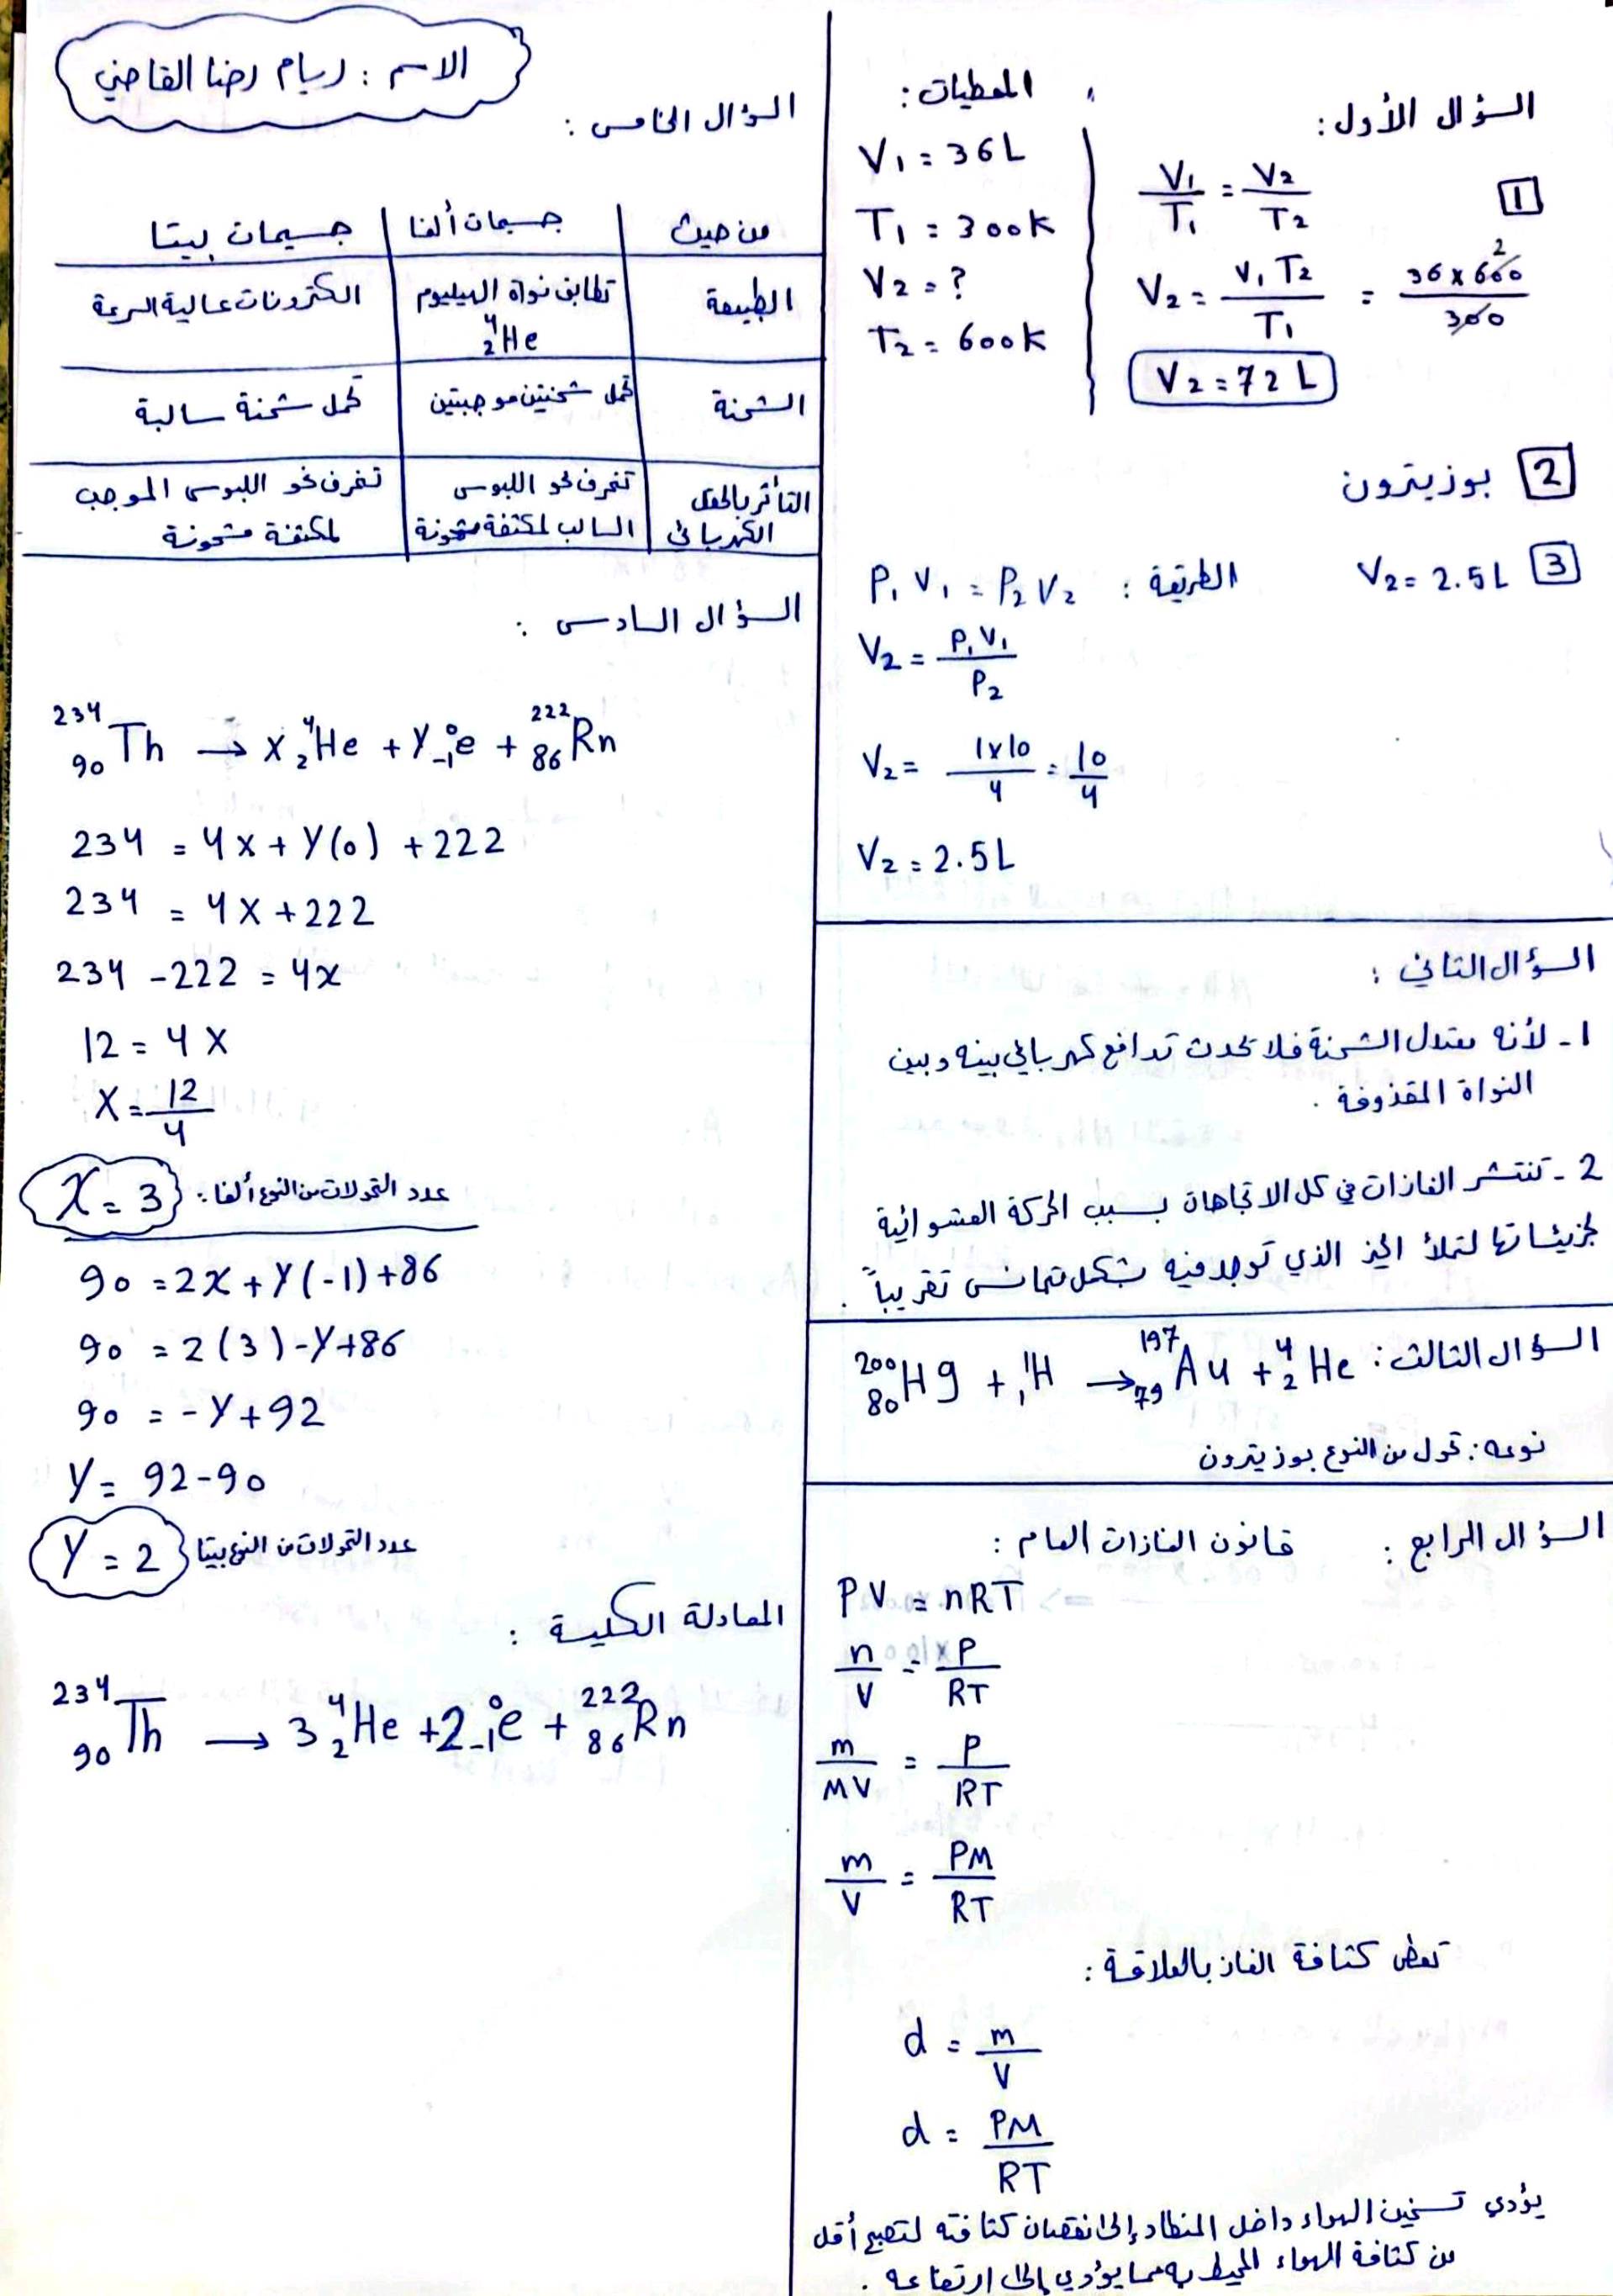 السؤال الأول:
1
V₁/T₁ = V₂/T₂
V₂ = V₁ T₂/T₁ = 36 x 600/300
2
V₂ = 72 L
المعطيات:
V₁ = 36 L
T₁ = 300 K
V₂ = ?
T₂ = 600 K
2 بوزيترون
3 V₂ = 2.5 L
الطريقة: P₁ V₁ = P₂ V₂
V₂ = P₁ V₁/P₂
V₂ = 1x10/4 = 10/4
V₂ = 2.5 L
السؤال الثاني:
1- لأنه معتدل الشحنة فلا يحدث تدافع كهربائي بينه وبين
النواة المقذوفة.
2- تنتشر الغازات في كل الاتجاهات بسبب الحركة العشوائية
لجزيئاتها لتملأ الحيز الذي توجد فيه بشكل متجانس تقريباً.
السؤال الثالث: ²⁰⁰₈₀Hg + ¹₁H → ¹⁹⁷₇₉Au + ⁴₂He
نوعه: تحول من النوع بوزيترون
السؤال الرابع: قانون الغازات العام:
PV = nRT
n/V = P/RT
m/MV = P/RT
m/V = PM/RT
تعطى كثافة الغاز بالعلاقة:
d = m/V
d = PM/RT
يؤدي تسخين الهواء داخل المنطاد إلى نقصان كثافته لتصبح أقل
من كثافة الهواء المحيط به مما يؤدي إلى ارتفاعه.
الاسم: ريام رضا القاضي
السؤال الخامس:
من حيث | جسيمات ألفا | جسيمات بيتا
الطبيعة | تطابق نواة الهيليوم ⁴₂He | الكترونات عالية السرعة
الشحنة | تحمل شحنتين موجبتين | تحمل شحنة سالبة
التأثر بالحقل الكهربائي | تنحرف نحو اللبوس السالب لمكثفة مشحونة | تنحرف نحو اللبوس الموجب لمكثفة مشحونة
السؤال السادس:
²³⁴₉₀Th → X ⁴₂He + Y ⁰₋₁e + ²²²₈₆Rn
234 = 4X + Y(0) + 222
234 = 4X + 222
234 - 222 = 4X
12 = 4X
X = 12/4
عدد التحولات من النوع ألفا: X = 3
90 = 2X + Y(-1) + 86
90 = 2(3) - Y + 86
90 = -Y + 92
Y = 92 - 90
عدد التحولات من النوع بيتا Y = 2
المعادلة الكلية:
²³⁴₉₀Th → 3 ⁴₂He + 2 ⁰₋₁e + ²²²₈₆Rn